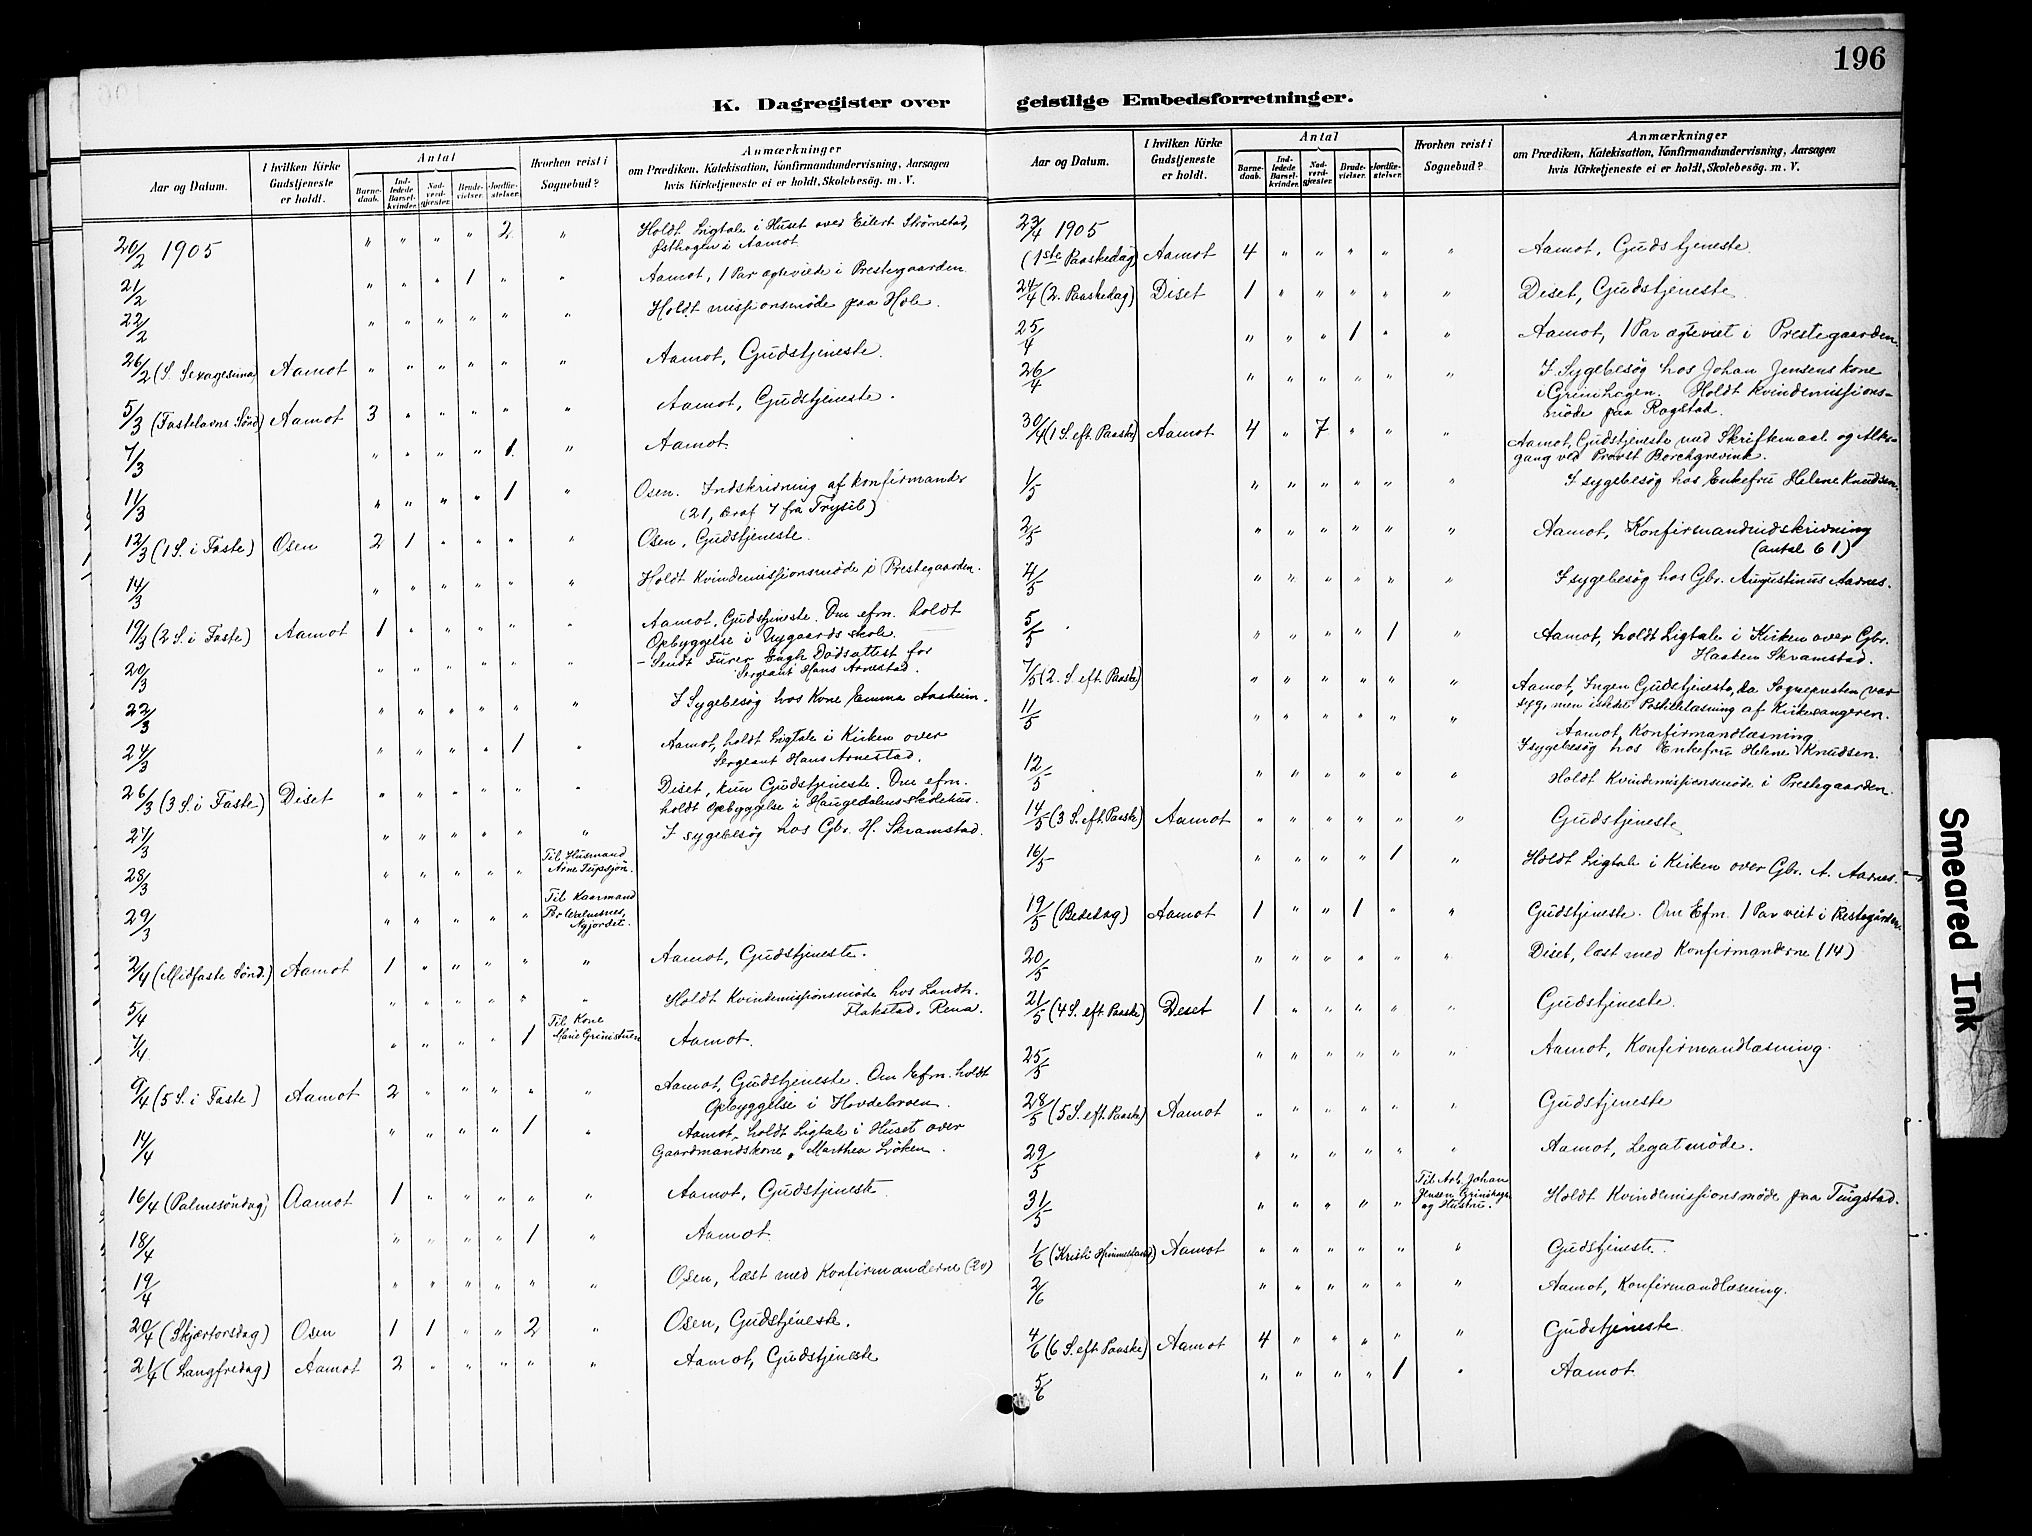 196
K. Dagregister over geistlige Embedsforretninger.
Aar og Datum.
I hvilken Kirke Gudstjeneste er holdt.
Antal
Barnedaab.
Indledede Barselkvinder.
Nadverdgjæster.
Brudevielser.
Jordfæstelser.
Hvorhen reist i Sognebud?
Anmærkninger
om Prædiken, Katekisation, Konfirmandundervisning, Aarsagen
hvis Kirketjeneste ei er holdt, Skolebesøg. m. V.
20/2 1905 " " " " 2 " Holdt Ligtale i Huset over Eilert Strømstad,
Østhagen i Aamot
21/2 " " " 1 " " Aamot, 1 Par ægteviede i Prestegaarden.
22/2 " " " " " " Holdt missionsmøde paa Hole.
26/2 (S. Sexagesima) Aamot " " " " " " Aamot, Gudstjeneste.
5/3 (Fastelavns Sønd) Aamot 3 " " " " " Aamot, Gudstjeneste.
7/3 " " " " 1 " Aamot.
11/3 " " " " 1 " Osen. Indskrivning af konfirmander
(21, hvoraf 7 fra Trysil)
12/3 (1 S. i Faste) Osen 2 1 " " " " Osen, Gudstjeneste.
14/3 " " " " " " Holdt Kvindemissionsmøde i Prestegaarden.
19/3 (2 S. i Faste) Aamot 1 " " " " " Aamot, Gudstjeneste. Om efm. holdt
Opbyggelse i Nygaards skole.
20/3 " " " " " " – Sendt Furer Engh Dødsattest for
Sergeant Hans Arnestad.
22/3 " " " " " " I Sygebesøg hos Kone Emma Aasheim.
24/3 " " " " 1 " Aamot, holdt Ligtale i Kirken over
Sergeant Hans Arnestad.
26/3 (3 S. i Faste) Diset " " " " " " Diset, kun Gudstjeneste. Om efm.
holdt Opbyggelse i Haugedalens skolehus.
27/3 " " " " " " I sygebesøg hos Gbr. H. Skramstad.
28/3 " " " " " Til Husmand
Arne Tupsjøn.
29/3 " " " " " Til Kaarmand
Per Walmsnes,
Nyjordet.
2/4 (Midfaste Sønd.) Aamot 1 " " " " " Aamot, Gudstjeneste.
5/4 " " " " " " Holdt Kvindemissionsmøde hos Landh.
Flakstad, Rena.
7/4 " " " " 1 Til Kone
Marie Grimstuen Aamot.
9/4 (5 S. i Faste) Aamot 2 " " " " " Aamot, Gudstjeneste. Om Efm. holdt
Opbyggelse i Hovdebroen.
14/4 " " " " 1 " Aamot, holdt Ligtale i Huset over
Gaardmandskone, Marthea Løken.
16/4 (Palmesøndag) Aamot 1 " " " " " Aamot, Gudstjeneste
18/4 " " " " 1 " Aamot.
19/4 " " " " " " Osen, læst med Konfirmanderne (20)
20/4 (Skjærtorsdag) Osen 1 1 " " 2 " Osen, Gudstjeneste.
21/4 (Langfredag) Aamot 2 " " " " " Aamot, Gudstjeneste
Aar og Datum.
I hvilken Kirke Gudstjeneste er holdt.
Antal
Barnedaab.
Indledede Barselkvinder.
Nadverdgjæster.
Brudevielser.
Jordfæstelser.
Hvorhen reist i Sognebud?
Anmærkninger
om Prædiken, Katekisation, Konfirmandundervisning, Aarsagen
hvis Kirketjeneste ei er holdt, Skolebesøg. m. V.
23/4 1905
(1ste Paaskedag) Aamot 4 " " " " " Aamot, Gudstjeneste
24/4 (2. Paaskedag) Diset 1 " " " " " Diset, Gudstjeneste
25/4 " " " 1 " " Aamot, 1 Par ægteviet i Prestegaarden
26/4 " " " " " " I Sygebesøg hos Johan Jensens kone
i Grimhagen. Holdt kvindemissions-
møde paa Rogstad.
30/4 (1 S. eft. Paaske) Aamot 4 " 7 " " " Aamot, Gudstjeneste med Skriftemaal og Alter-
gang ved Provst Borchgrevink.
1/5 " " " " " " I sygebesøg hos Enkefru Helene Knudsen.
2/5 " " " " " " Aamot, Konfirmandindskrivning
(antal 61)
4/5 " " " " " " I sygebesøg hos Gbr. Augustinus Aarnes.
5/5 " " " " 1 " Aamot, holdt Ligtale i Kirken over Gbr.
Haaken Skramstad.
7/5 (2. S. eft Paaske) " " " " " " Aamot, Ingen Gudstjeneste, da Sognepresten var
syg, men istedet Postillelæsning af Kirkesangeren.
11/5 " " " " " " Aamot Konfirmandlæsning
I sygebesøg hos Enkefru Helene Knudsen.
12/5 " " " " " " Holdt Kvindemissionsmøde i Prestegaarden.
14/5 (3 S. eft. Paaske) Aamot " " " " " " Gudstjeneste
16/5 " " " " 1 " Holdt Ligtale i Kirken over Gbr. A. Aarnes.
19/5 (Bededag) Aamot 1 " " 1 " " Gudstjeneste. Om Efm. 1 Par viet i Prestegården.
20/5 " " " " " " Diset, læst med Konfirmanderne (14)
21/5 (4 S. eft Paaske) Deset 1 " " " " " Gudstjeneste.
25/5 " " " " " " Aamot, Konfirmandlæsning.
28/5 (5 S. eft. Paaske) Aamot " " " " " " Gudstjeneste
29/5 " " " " " " Aamot, Legatmøde.
31/5 " " " " " Til Arb. Johan
Jensen Grimhagn
og Hustru. Holdt Kvindemissionsmøde paa Tingstad.
1/6 (Kristi Himmelfartsd) Aamot " " " " " " Gudstjeneste.
2/6 " " " " " " Aamot, Konfirmandlæsning.
4/6 (6 S. eft Paaske) Aamot 4 " " " " " Gudstjeneste
5/6 " " " " 1 " Aamot.
Smeared Ink